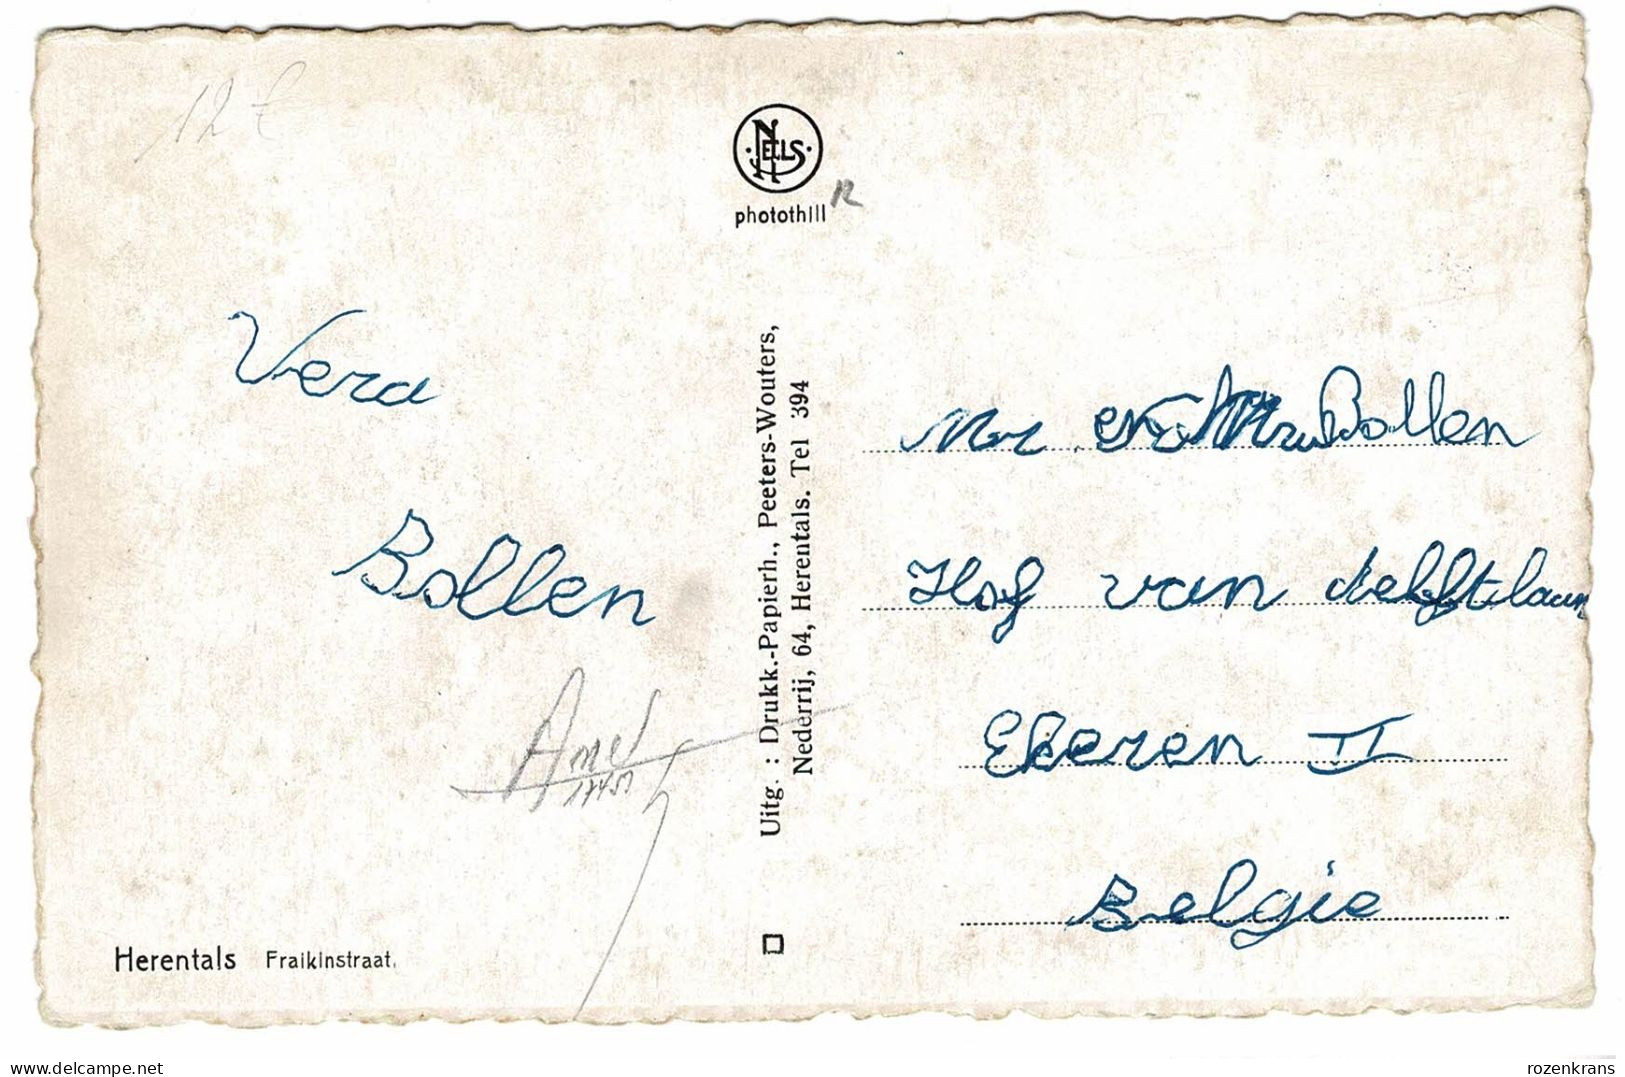 12 €
NELS
photothill
R
Vera
Bollen
Uitg. : Drukk.-Papierh., Peeters-Wouters,
Nederrij, 64, Herentals. Tel 394
Mr en Mr Bollen
Hof van delftlaan
Ekeren II
Belgie
Herentals Fraikinstraat.
rozenkrans